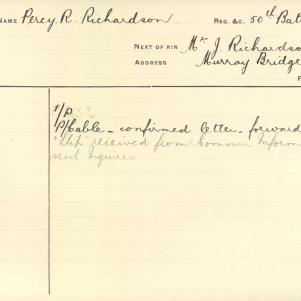 NAME Percy R. Richardson. REG. &C. 50th Bat
NEXT OF KIN Mr J. Richardso
ADDRESS Murray Bridge
1/P
P/Cable - confirmed letter - forward
slip received from Commrs. Inform
send Inquirer